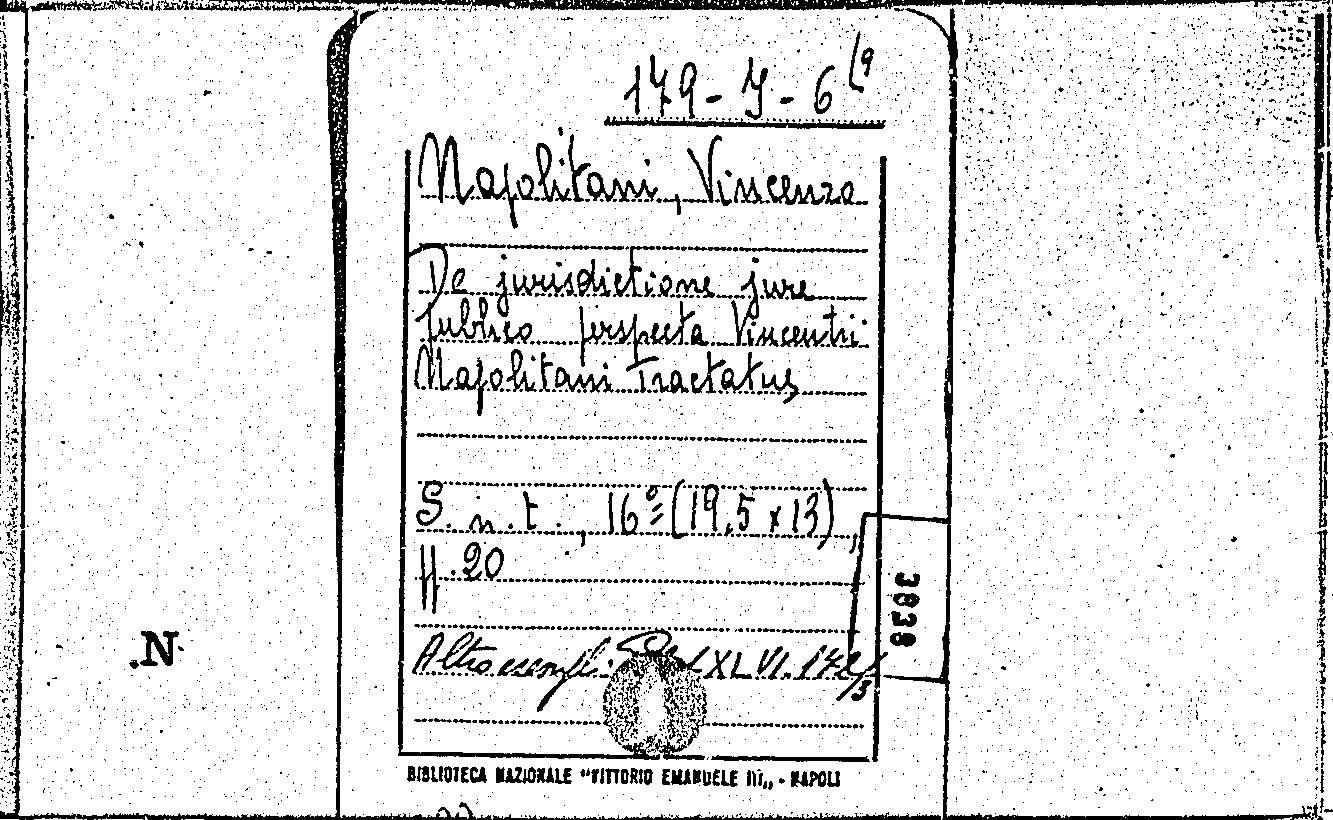 179-J-6 (9
Napolitani, Vincenzo
De jurisdictione jure
publico perspecta Vincentii
Napolitani Tractatus
S. n. t., 16º (19,5 x 13),
ff. 20
Altro esempl: XLVI. 172/3
3838
.N
BIBLIOTECA NAZIONALE "VITTORIO EMANUELE III„ - NAPOLI